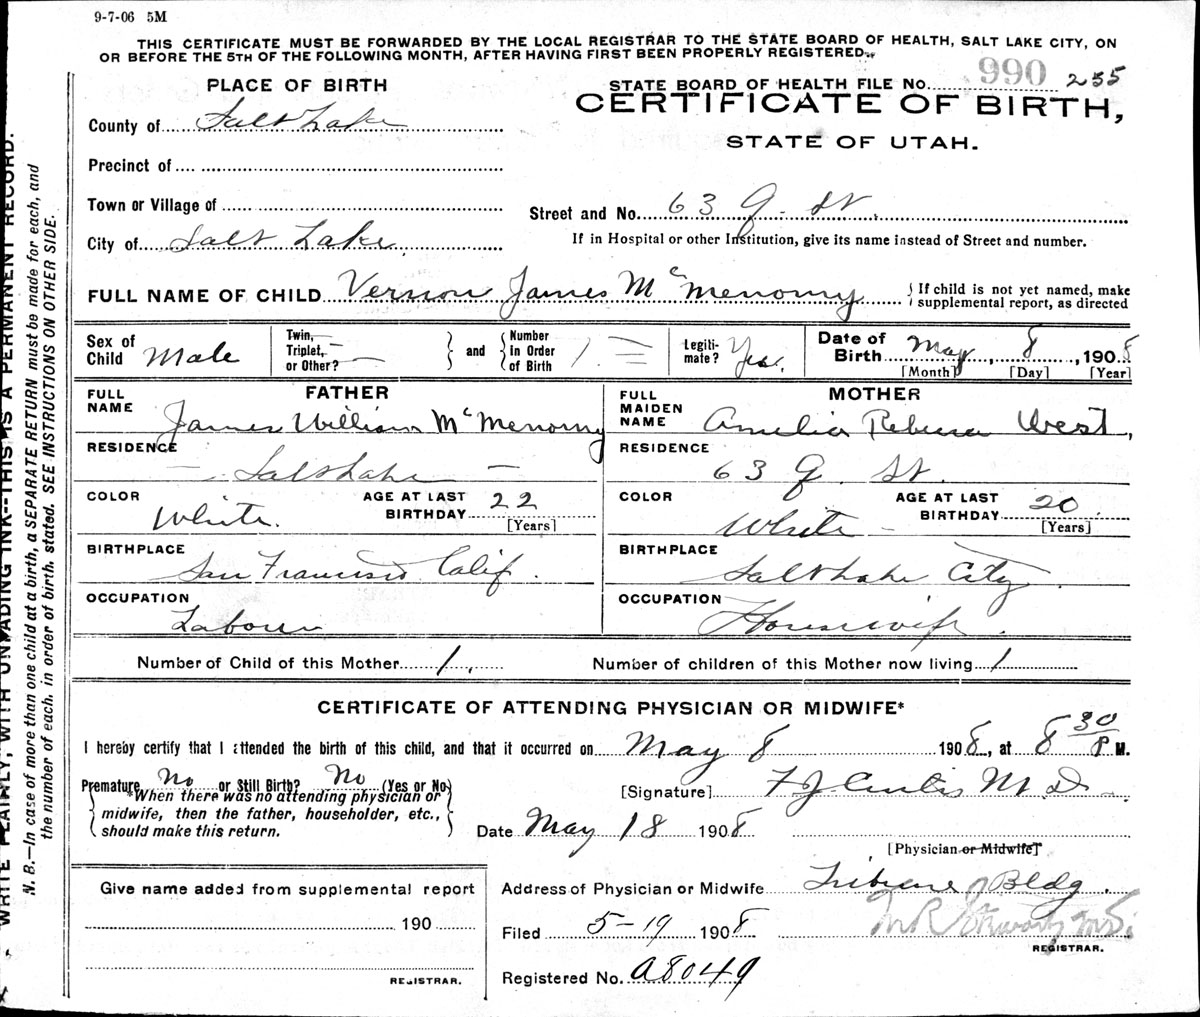 9-7-06 5M
THIS CERTIFICATE MUST BE FORWARDED BY THE LOCAL REGISTRAR TO THE STATE BOARD OF HEALTH, SALT LAKE CITY, ON
OR BEFORE THE 5TH OF THE FOLLOWING MONTH, AFTER HAVING FIRST BEEN PROPERLY REGISTERED.
PLACE OF BIRTH
STATE BOARD OF HEALTH FILE No. 990 255
CERTIFICATE OF BIRTH,
STATE OF UTAH.
County of Salt Lake
Precinct of
Town or Village of
Street and No. 63 Q. St.
City of Salt Lake
If in Hospital or other Institution, give its name instead of Street and number.
FULL NAME OF CHILD Vernon James McMenomy
If child is not yet named, make
supplemental report, as directed
Sex of Child Male
Twin, Triplet, or Other?
and
Number in Order of Birth 1
Legiti-mate? Yes.
Date of Birth May, 8, 1908
[Month] [Day] [Year]
FATHER
MOTHER
FULL NAME James William McMenomy
FULL MAIDEN NAME Amelia Rebecca West,
RESIDENCE — Salt Lake —
RESIDENCE 63 Q. St.
COLOR White. AGE AT LAST BIRTHDAY 22 [Years]
COLOR White – AGE AT LAST BIRTHDAY 20. [Years]
BIRTHPLACE San Francisco Calif.
BIRTHPLACE Salt Lake City
OCCUPATION Laborer
OCCUPATION Housewife.
Number of Child of this Mother 1.
Number of children of this Mother now living 1
CERTIFICATE OF ATTENDING PHYSICIAN OR MIDWIFE*
I hereby certify that I attended the birth of this child, and that it occurred on May 8 1908, at 8 30 P.M.
Premature No or Still Birth? No (Yes or No)
[Signature] F J Curtis M.D.
*When there was no attending physician or
midwife, then the father, householder, etc.,
should make this return.
Date May 18 1908
[Physician or Midwife]
Give name added from supplemental report
Address of Physician or Midwife Tribune Bldg.
190
Filed 5-19 1908
REGISTRAR.
REGISTRAR.
Registered No. A8049
WRITE PLAINLY, WITH UNFADING INK--THIS IS A PERMANENT RECORD.
N. B.—In case of more than one child at a birth, a SEPARATE RETURN must be made for each, and
the number of each, in order of birth, stated. SEE INSTRUCTIONS ON OTHER SIDE.